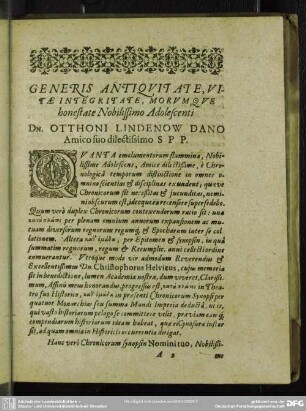 GENERIS ANTIQVITATE, VI-
TÆ INTEGRITATE, MORVMQVE
honestate Nobilissimo Adolescenti
DN. OTTHONI LINDENOW DANO
Amico suo dilectissimo S P P.
QVANTA emolumentorum flumina, Nobi-
lissime Adolescens, Amice dilectissime, è Chro-
nologicâ temporum distinctione in omne o-
mnino scientias & disciplinas exundent, quàve
Chronicorum sit necessitas & jucunditas, ne mi-
ni obscurum est, ideoque à recensere supersedebo.
Quum verò duplex Chronicorum contexendorum ratio sit: una
per plenam omnium annorum expansionem ac mu-
tuam diversorum regnorum regumq́; & Epocharum inter se col-
lationem. Altera per Epitomen & synopsin, in quâ
summatim regnorum, regum & Rerumpubl. anni collectorum
enumerantur. Vtroque modo vir admodum Reverendus &
Excellentissimus Dn. Christophorus Helvicus, cujus memoria
sit in benedictione, lumen Academiæ nostræ, dum viveret, Clarissi-
mum, Affinis meus honorandus, progressus est, in Thea-
tro suo Historico, in præsenti Chronicorum Synopsi per
quatuor Monarchias seu summa Mundi Imperia deductâ, ni si,
qui vasto historiarum pelago se committere velit,
compendium historiarum vitam habeat, quæ
ad quam omnia in Historicis occurrentia dirigat.
Hanc verò Chronicorum synopsin Nomini tuo, Nobilissi-
A 2 me
http://digital.slub-dresden.de/
gefördert von der
Deutschen Forschungsgemeinschaft
DFG